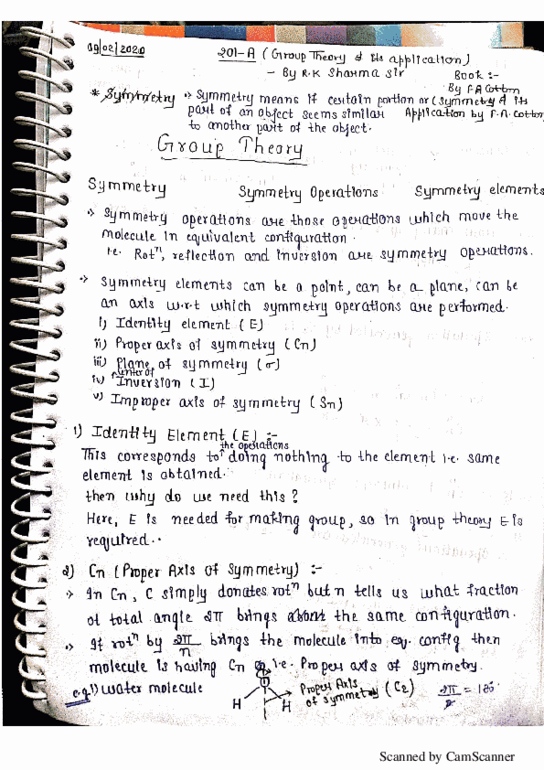 09/02/2020
201-A (Group Theory & its application)
- By R.K Sharma Sir
Book :-
By F.A Cotton
* Symmetry → Symmetry means if certain portion or (Symmetry & its
part of an object seems similar Application by F.A. Cotton
to another part of the object.
Group Theory
Symmetry Symmetry Operations Symmetry elements
→ Symmetry operations are those operations which move the
molecule in equivalent configuration.
i.e. Rotⁿ, reflection and inversion are symmetry operations.
→ Symmetry elements can be a point, can be a plane, can be
an axis w.r.t which symmetry operations are performed.
i) Identity element (E)
ii) Proper axis of symmetry (Cn)
iii) Plane of symmetry (σ)
center of
iv) Inversion (I)
v) Improper axis of symmetry (Sn)
1) Identity Element (E) :-
the operations
This corresponds to doing nothing to the element i.e. same
element is obtained.
then why do we need this ?
Here, E is needed for making group, so in group theory E is
required..
2) Cn (Proper Axis of Symmetry) :-
→ In Cn, C simply donates rotⁿ but n tells us what fraction
of total angle 2π brings about the same configuration.
→ If rotⁿ by 2π/n brings the molecule into eq. config then
molecule is having Cn i.e. Proper axis of symmetry.
e.g.1) water molecule
H H
Proper Axis
of symmetry (C2)
2π/2 = 180°
Scanned by CamScanner